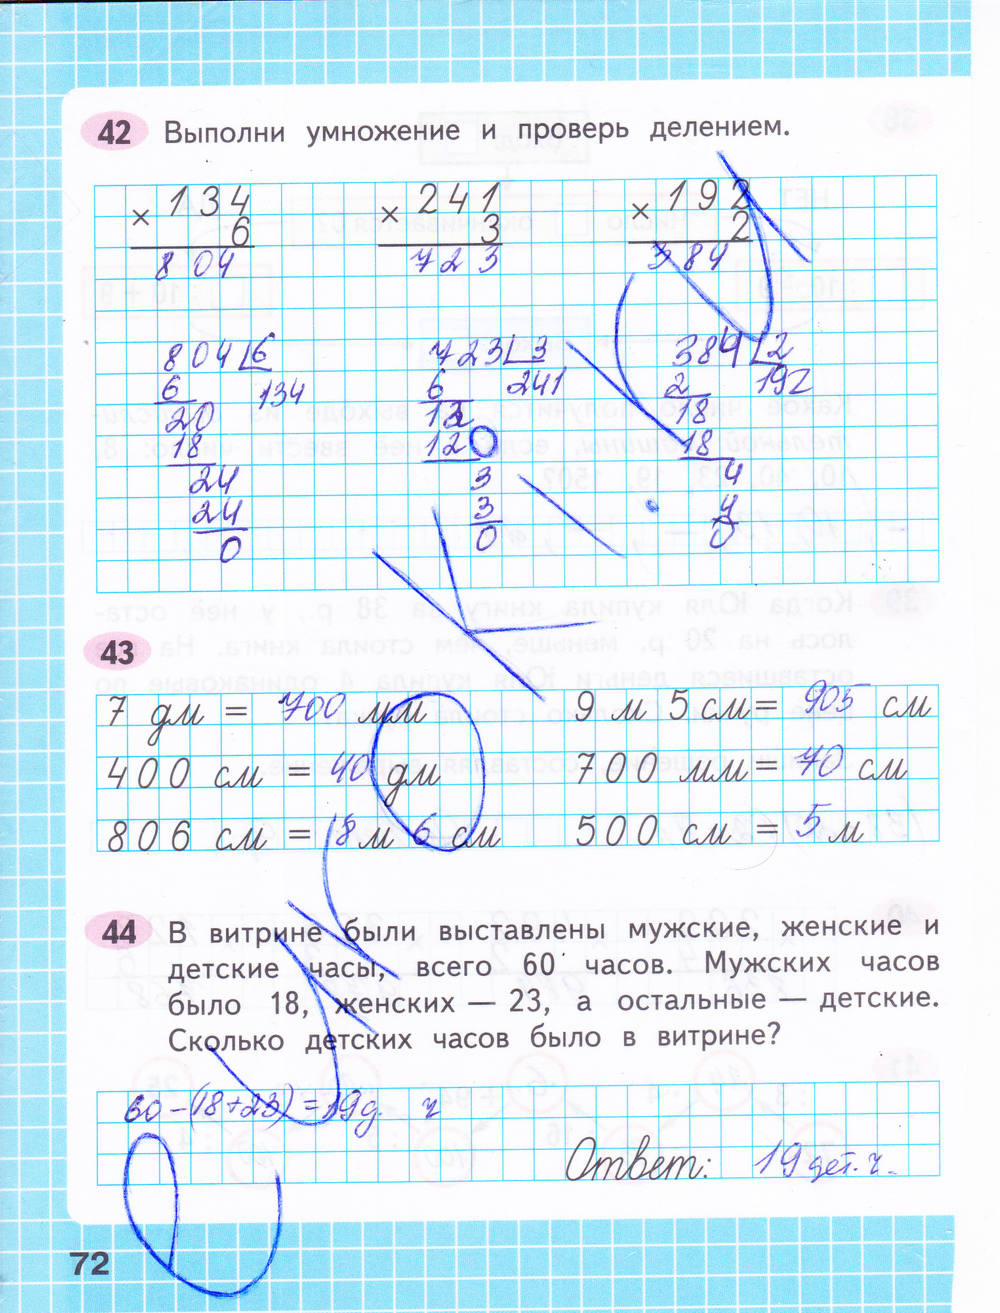 42 Выполни умножение и проверь делением.
× 134 × 241 × 192
6 3 2
804 723 384
804 6 723 3 384 2
6 134 6 241 2 192
20 12 18
18 12 18
24 3 4
24 3 4
0 0 0
43
7 дм = 700 мм 9 м 5 см = 905 см
400 см = 40 дм 700 мм = 70 см
806 см = 8 м 6 см 500 см = 5 м
44 В витрине были выставлены мужские, женские и
детские часы, всего 60 часов. Мужских часов
было 18, женских — 23, а остальные — детские.
Сколько детских часов было в витрине?
60 - (18 + 23) = 19 д. ч
Ответ: 19 дет. ч.
72